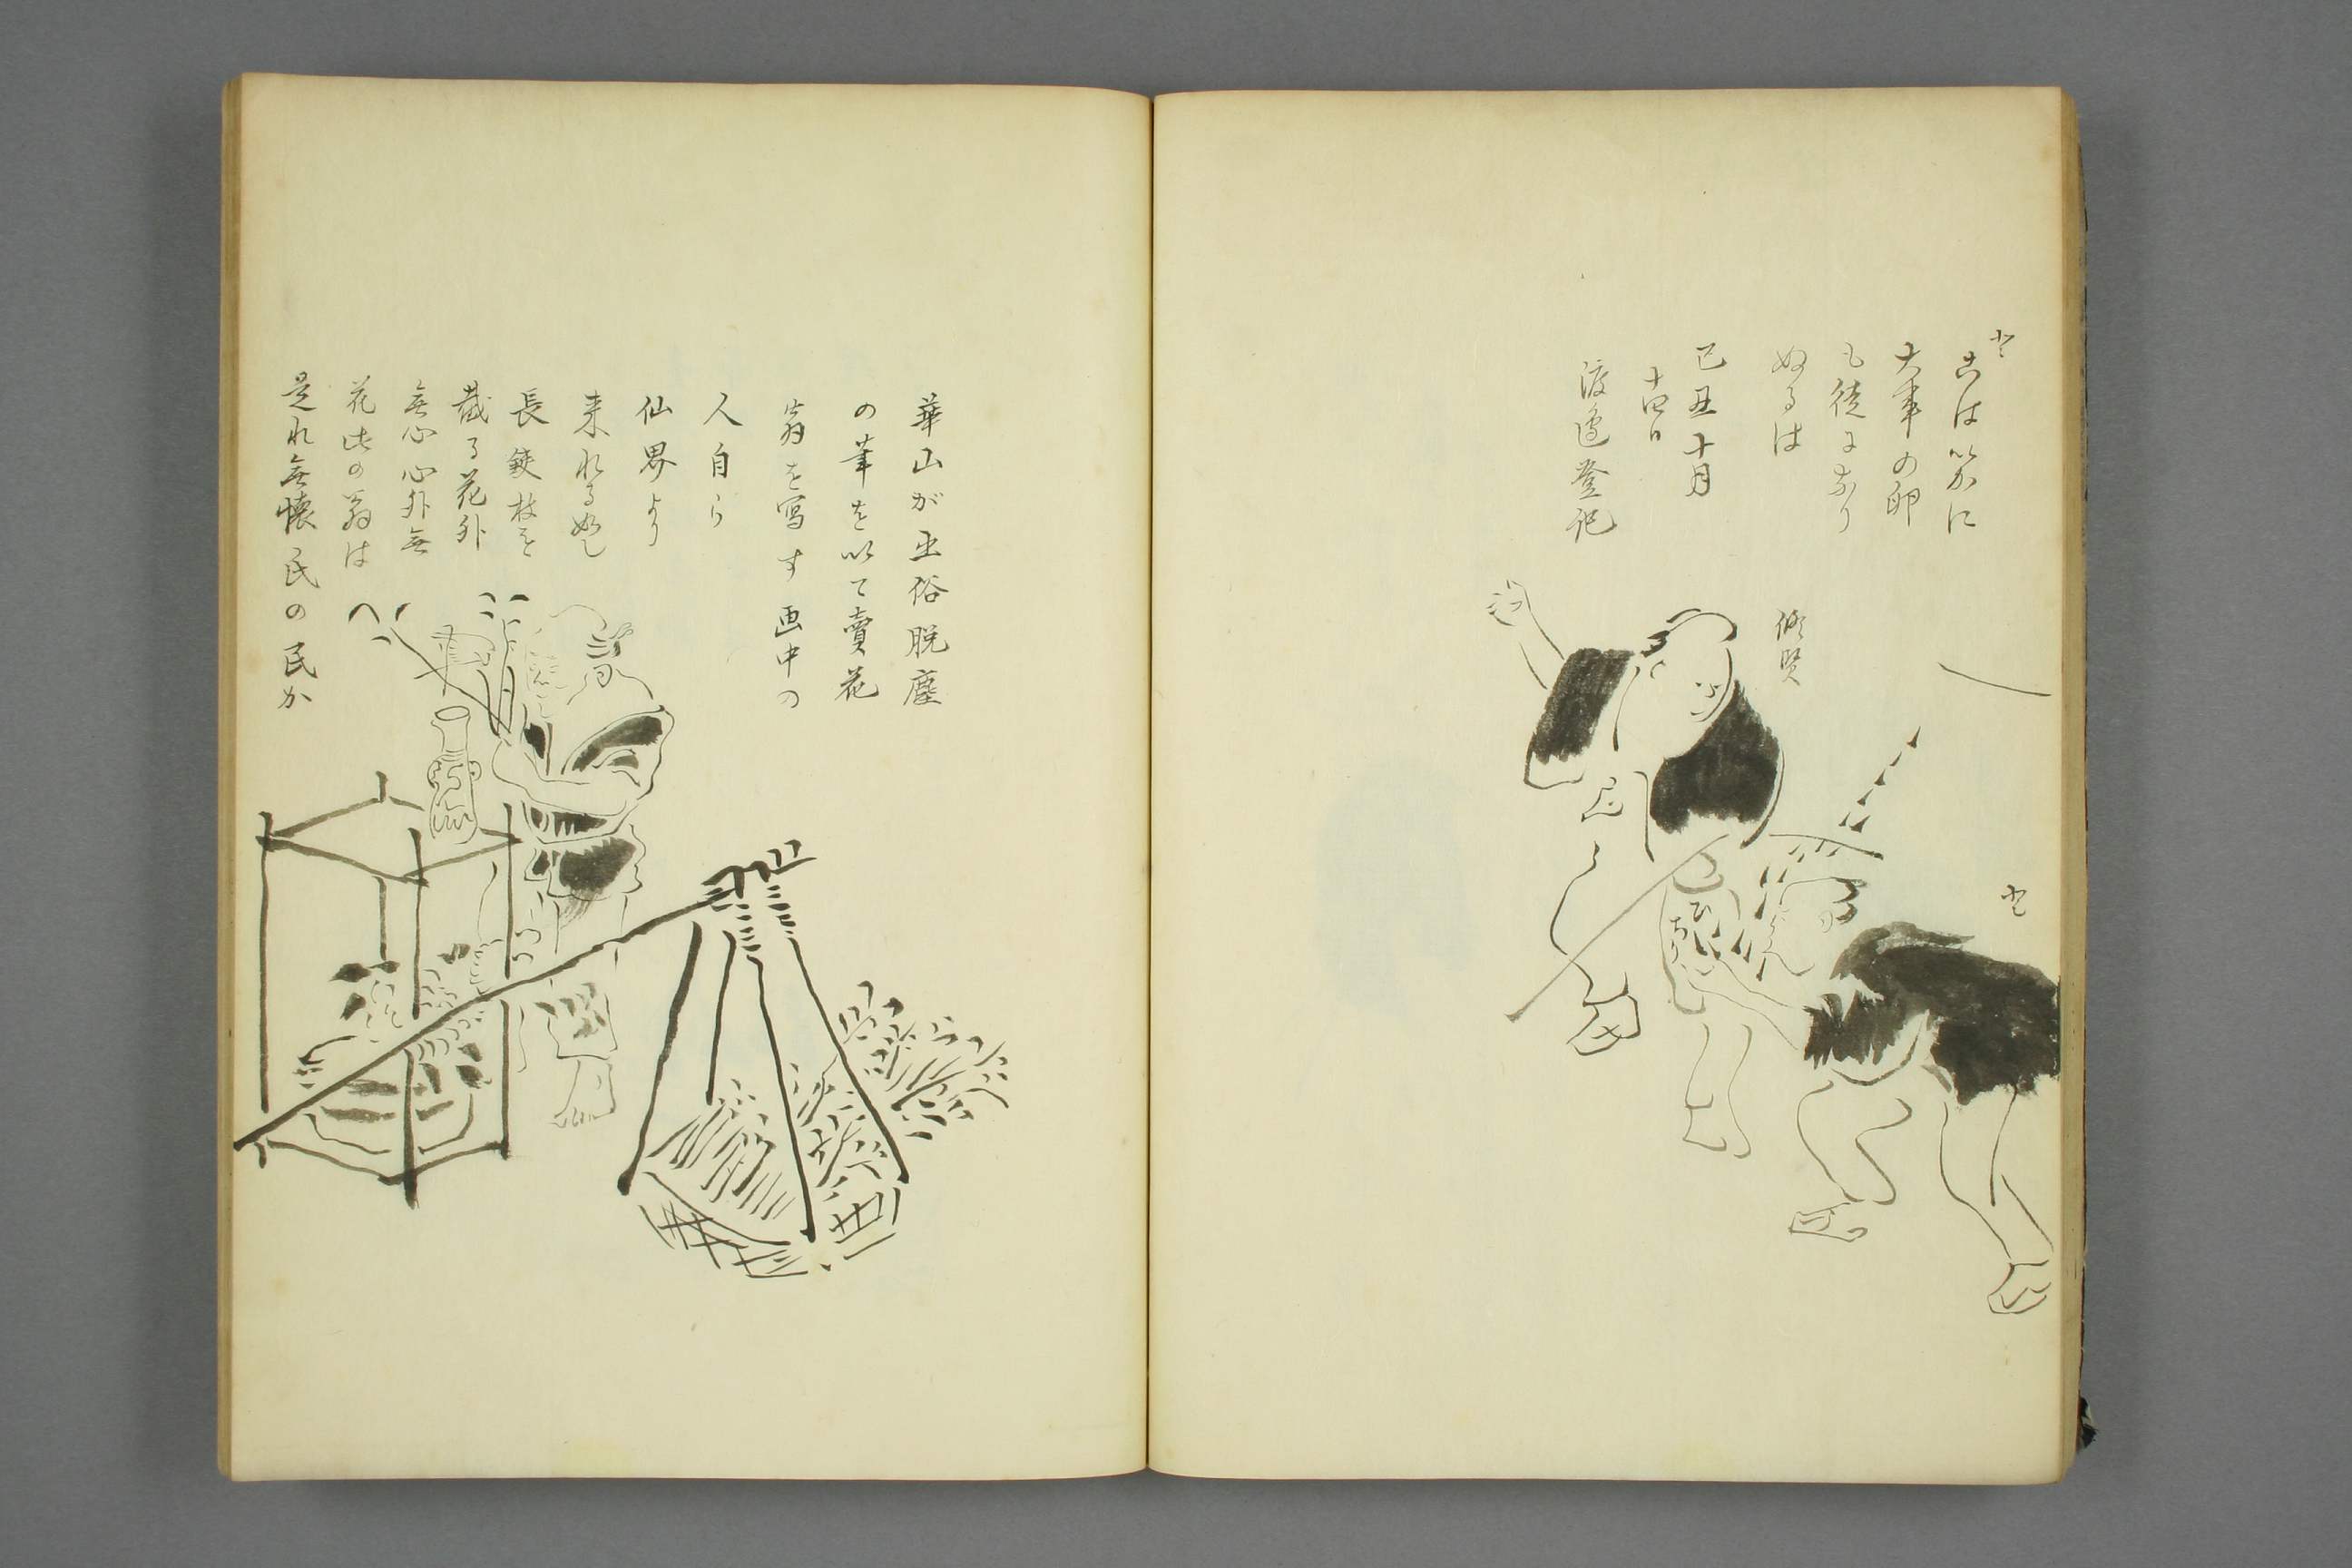 大事の卵
も徒になり
ぬるは
己丑十月
十四日
渡邉登記
華山が出俗脱塵
の筆を以て賣花
翁を写す画中の
人自ら
仙界より
来れる如し
長鋏枝を
截る花外
無心心外無
花此の翁は
是れ無懐氏の民か